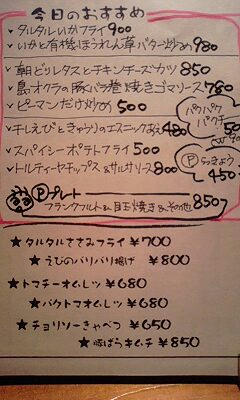 今日のおすすめ
タルタルいかフライ 900
いかと有機ほうれん草バター炒め 980
朝どりレタスとチキンチーズカツ 850
島オクラの豚バラ巻焼きゴマソース 780
ピーマンだけ炒め 500
パクパク
パクチ
干しえびときゅうりのエスニックあえ 480
スパイシーポテトフライ 500
Ⓟらっきょう
450
トルティーヤチップス&サルサソース 800
Ⓟプレート
フランクフルト&目玉焼き&その他 850
★タルタルささみフライ ¥700
★えびのパリパリ揚げ ¥800
★トマチーオムレツ ¥680
★パクトマオムレツ ¥680
★チョリソーきゃべつ ¥650
★豚ばらキムチ ¥850